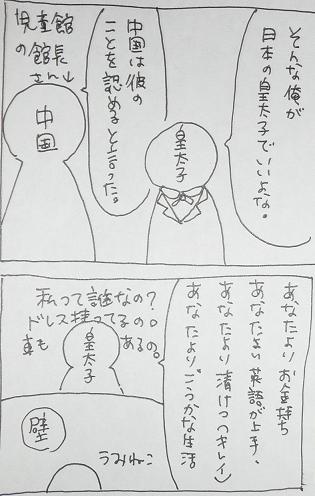 そんな俺が
日本の皇太子でいいよな。
皇太子
中国は彼の
ことを認めると言った。
児童館
の館長
さん↓
中国
あなたよりお金持ち
あなたより英語が上手、
あなたより漬けっつキレイ)
あなたより。ごうかな生活
私って誰なの?
ドレス持ってるの。
車もあるの。
皇太子
壁
うみねこ